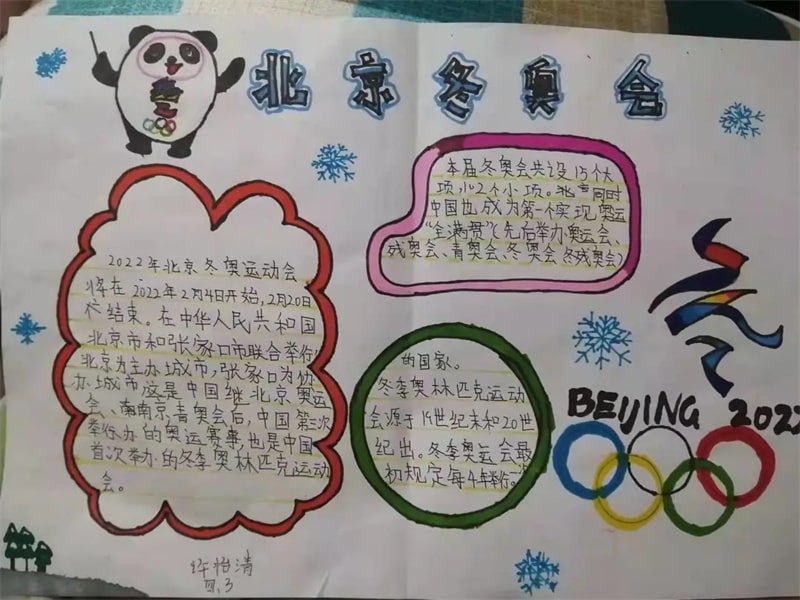 北京冬奥会
2022年北京冬奥运动会
将在2022年2月4日开始,2月20日
结束。在中华人民共和国
北京市和张家口市联合举行,
北京为主办城市,张家口为协
办城市,这是中国继北京奥运
会、南京青奥会后,中国第三次
举行办的奥运赛事,也是中国
首次举办的冬季奥林匹克运动
会。
本届冬奥会共设15个大
项,102个小项。北京同时
中国也成为第一个实现奥运
“全满贯”(先后举办奥运会、
残奥会、青奥会、冬奥会、冬残奥会)
的国家。
冬季奥林匹克运动
会源于19世纪末和20世
纪出。冬季奥运会最
初规定每4年举行一次
BEIJING 2022
许怡清
四.3